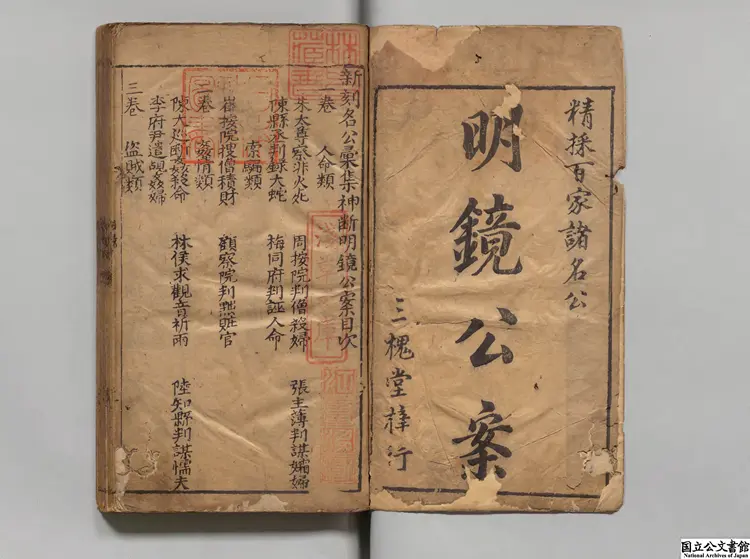 精採百家諸名公
明鏡公案
三槐堂梓行
新刻名公彙集神断明鏡公案目次
一卷　人命類
朱太尊察非火死　周按院判僧殺婦　張主薄判謀孀婦
陳縣丞判錄大蛇　梅同府判誣人命
索騙類
崔按院搜僧積財　顏察院判黜賍官
二卷　姦情類
陳大巡斷姦殺命　林侯求觀音祈雨　陸知縣判謀懦夫
李府尹遣覘姦婦
三卷　盜賊類
国立公文書館
National Archives of Japan